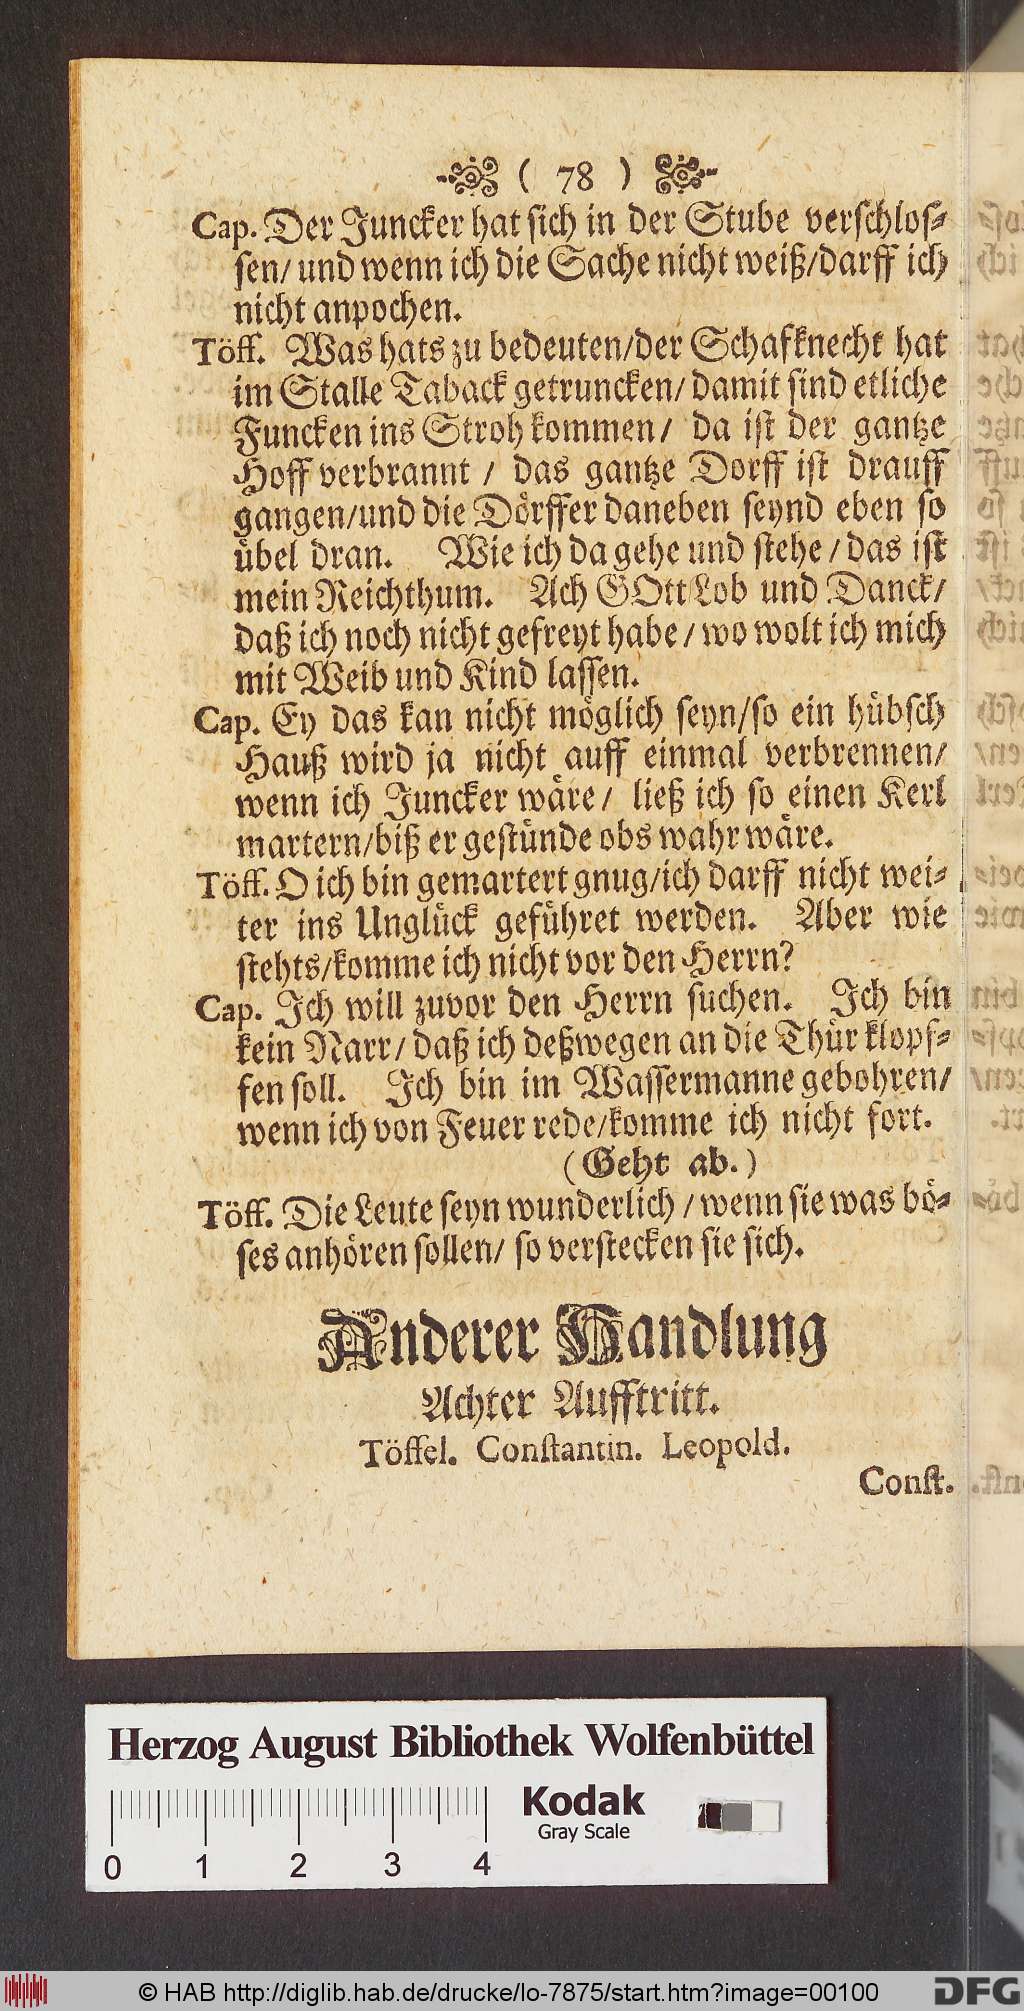 ( 78 )
Cap. Der Juncker hat sich in der Stube verschlos-
sen/ und wenn ich die Sache nicht weiß/darff ich
nicht anpochen.
Töff. Was hats zu bedeuten/der Schafknecht hat
im Stalle Taback getruncken/ damit sind etliche
Funcken ins Stroh kommen/ da ist der gantze
Hoff verbrannt / das gantze Dorff ist drauff
gangen/und die Dörffer daneben seynd eben so
übel dran. Wie ich da gehe und stehe / das ist
mein Reichthum. Ach GOtt Lob und Danck/
daß ich noch nicht gefreyt habe / wo wolt ich mich
mit Weib und Kind lassen.
Cap. Ey das kan nicht möglich seyn/so ein hübsch
Hauß wird ja nicht auff einmal verbrennen/
wenn ich Juncker wäre / ließ ich so einen Kerl
martern/biß er gestünde obs wahr wäre.
Töff. O ich bin gemartert gnug/ich darff nicht wei-
ter ins Unglück geführet werden. Aber wie
stehts/komme ich nicht vor den Herrn?
Cap. Ich will zuvor den Herrn suchen. Ich bin
kein Narr/ daß ich deßwegen an die Thür klopf-
fen soll. Ich bin im Wassermanne gebohren/
wenn ich von Feuer rede/komme ich nicht fort.
(Geht ab.)
Töff. Die Leute seyn wunderlich / wenn sie was bö-
ses anhören sollen/ so verstecken sie sich.
Anderer Handlung
Achter Aufftritt.
Töffel. Constantin. Leopold.
Const.
Herzog August Bibliothek Wolfenbüttel
Kodak
Gray Scale
0 1 2 3 4
© HAB http://diglib.hab.de/drucke/lo-7875/start.htm?image=00100
DFG